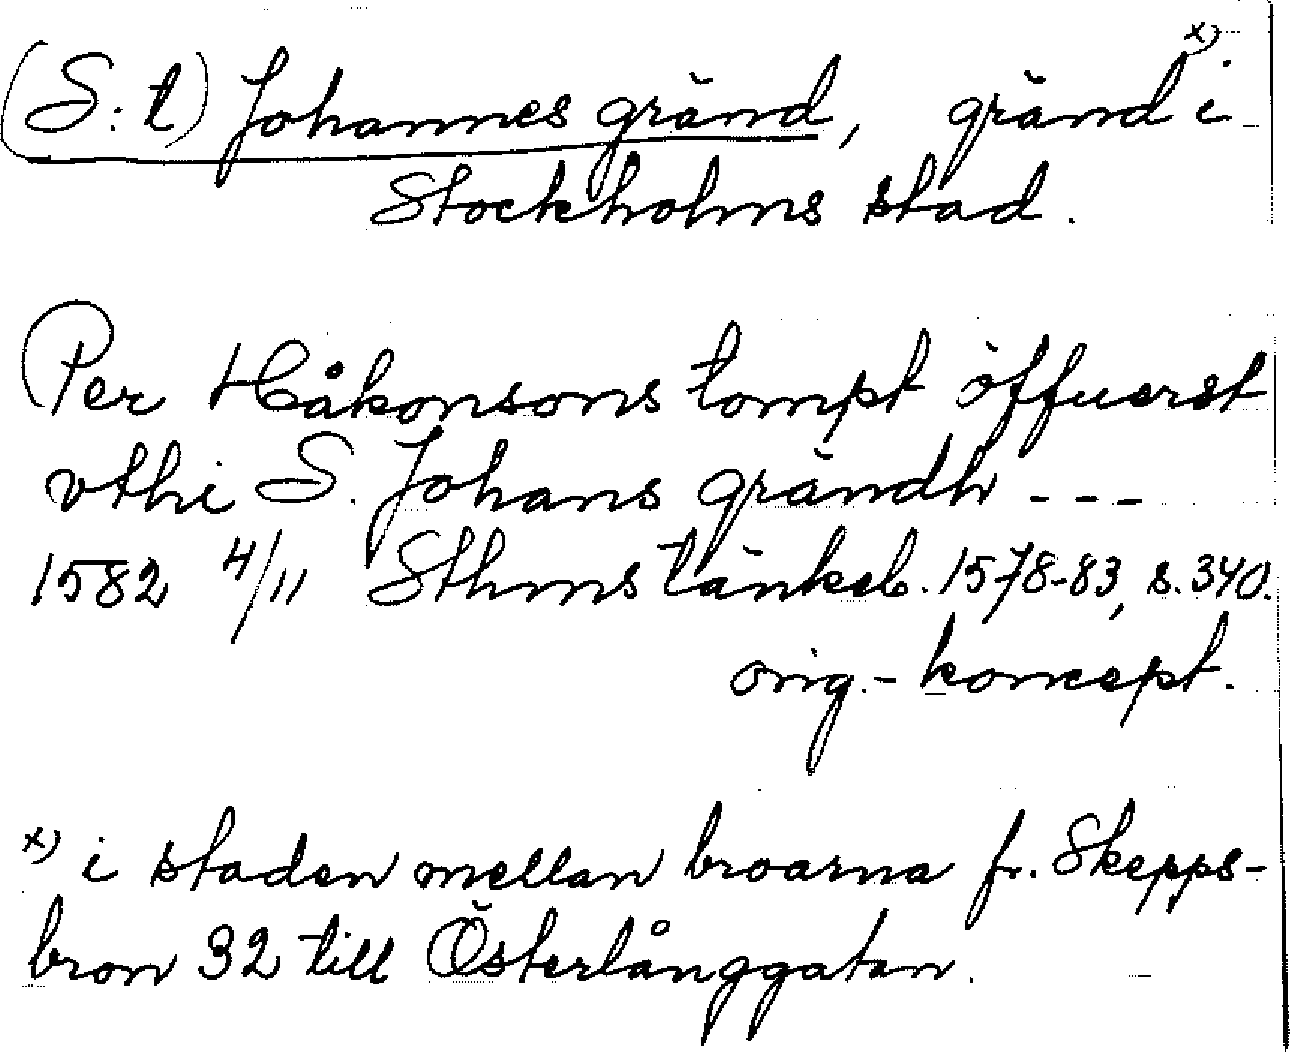 (S:t) Johannes gränd, gränd x) i
Stockholms stad.
Per Håkonsons tompt öffuerst
vthi S. Johans grändh ---
1582 4/11 Sthms tänkeb. 1578-83, s. 340.
orig.-koncept.
x) i staden mellan broarna fr. Skepps-
bron 32 till Österlånggatan.